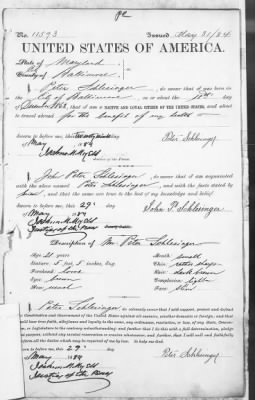 No. 11593 Issued May 31/84
UNITED STATES OF AMERICA.
State of Maryland
County of Baltimore
I, Peter Schlesinger, do swear that I was born in
the City of Baltimore on or about the day
of December 1862, that I am a NATIVE AND LOYAL CITIZEN OF THE UNITED STATES, and about
to travel abroad for the benefit of my health
Sworn to before me, this twenty ninth day
of May 1884 Peter Schlesinger
Justice of the Peace.
I, John Peter Schlesinger, do swear that I am acquainted
with the above named Peter Schlesinger, and with the facts stated by
him, and that the same are true to the best of my knowledge and belief.
Sworn to before me, this 29 day
of May 1884 John P. Schlesinger
Justice of the Peace
Description of Mr Peter Schlesinger
Age: 21 years Mouth: small
Stature: 5 feet, 5 inches, Eng. Chin:
Forehead: Hair: dark brown
Eyes: brown Complexion: light
Nose: usual Face: thin
I, Peter Schlesinger, do solemnly swear that I will support, protect and defend
the Constitution and Government of the United States against all enemies, whether domestic or foreign; and that
I will bear true faith, allegiance and loyalty to the same, any ordinance, resolution, or law, of any State, Convention,
or Legislature to the contrary notwithstanding; and further that I do this with a full determination, pledge
and purpose, without any mental reservation or evasion whatsoever; and further that I will well and faithfully
perform all the duties which may be required of me by law. So help me God.
Sworn to before me, this 29 day
of May 1884 Peter Schlesinger
Justice of the Peace